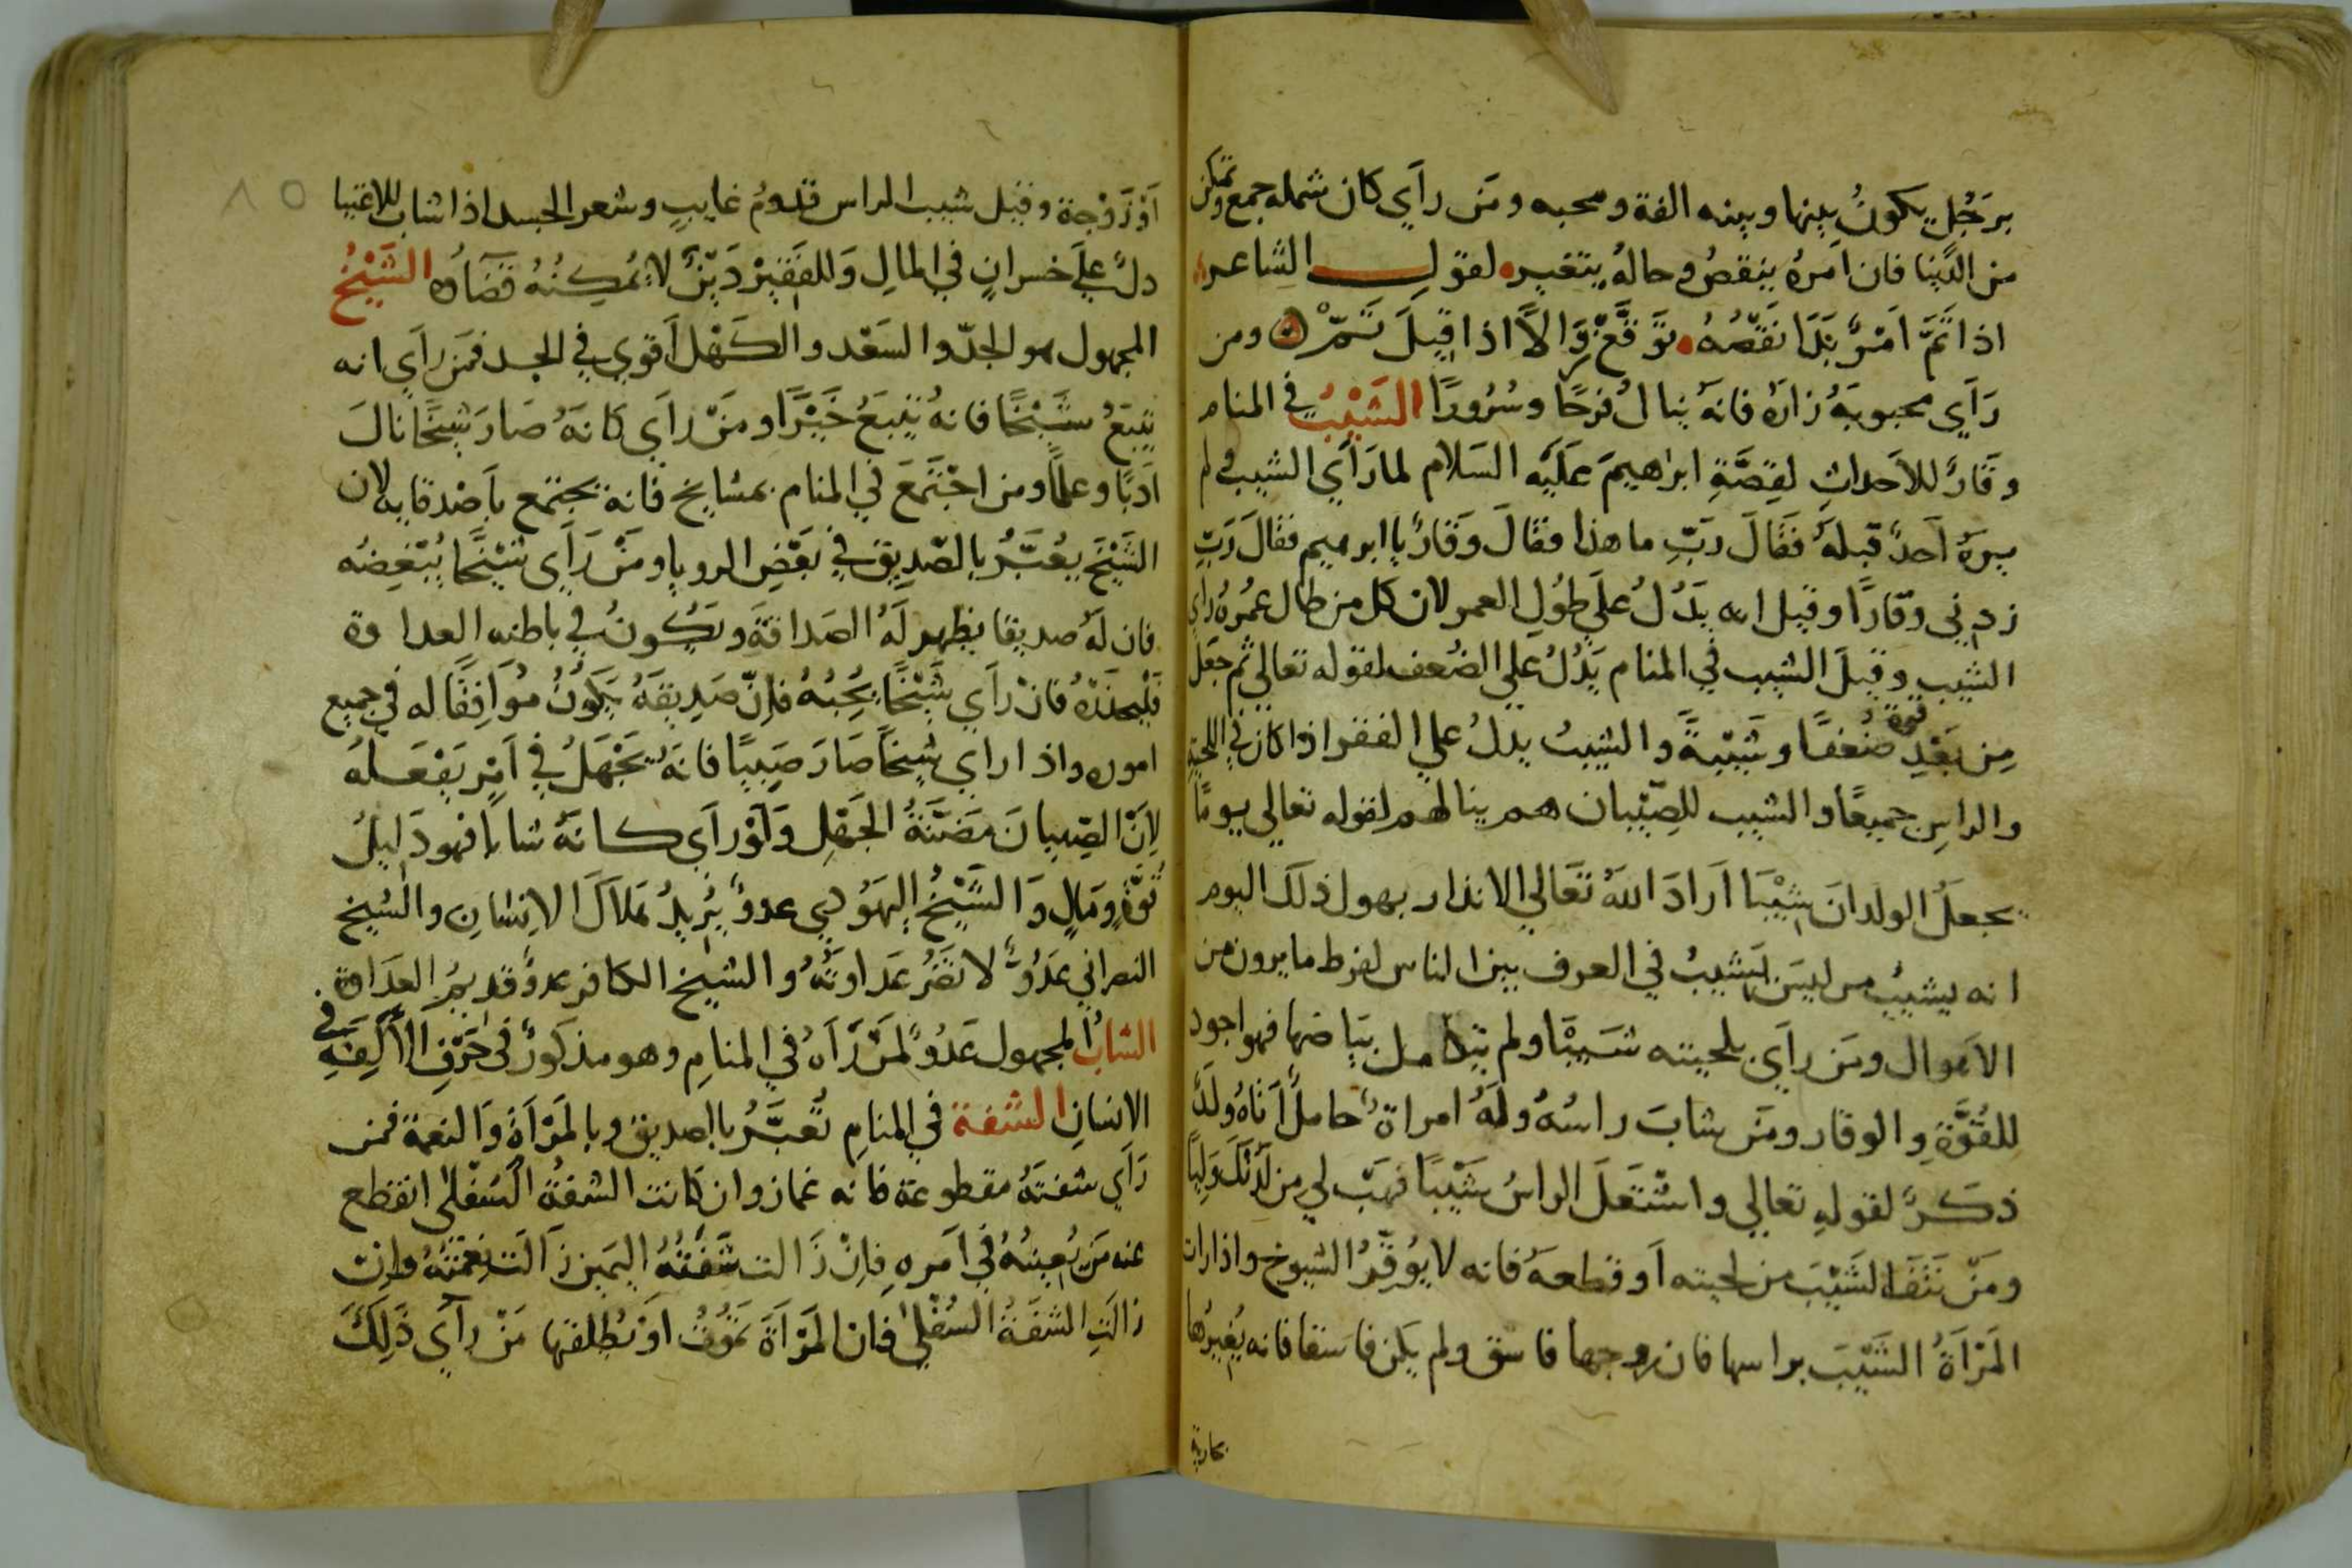 برجل يكون بينها وبينه الفة ومحبه ومن راي كان شمله جمع وتمكن
من الدنيا فان امره ينقص وحاله يتغير لقول الشاعر
اذا تم امر بدا نقصه توقع زوالا اذا قيل تم ومن
راي محبوبه زاره فانه ينال فرحا وسرورا الشيب في المنام
وقار للاحداث لقصة ابراهيم عليه السلام لما راي الشيب ولم
يره احد قبله فقال رب ما هذا فقال وقار يا ابرهيم فقال رب
زدني وقارا وقيل انه يدل علي طول العمر لان كل من طال عمره راي
الشيب وقيل الشيب في المنام يدل علي الضعف لقوله تعالي ثم جعل
من بعد قوة ضعفا وشيبة والشيب يدل علي الفقر اذا كان في اللحية
والراس جميعا والشيب للصبيان هم ينالهم لقوله تعالي يوما
يجعل الولدان شيبا اراد الله تعالي الانذار بهول ذلك اليوم
انه يشيب من ليس يشيب في العرف بين الناس لفرط ما يرون من
الاهوال ومن راي بلحيته شيبا ولم يتكامل بياضها فهو اجود
للقوة والوقار ومن شاب راسه وله امراة حامل اتاه ولد
ذكر لقوله تعالي واشتعل الراس شيبا فهب لي من لدنك وليا
ومن نتف الشيب من لحيته او قطعه فانه لا يوقر الشيوخ واذا رات
المراة الشيب براسها فان زوجها فاسق ولم يكن فاسقا فانه يغيرها
بجارية
٨٥
او زوجة وقيل شيب الراس قدوم غايب وشعر الجسد اذا شاب للاغنيا
دل علي خسران في المال وللفقير دين لا يمكنه قضاؤه الشيخ
المجهول هو الجد والسعد والكهل اقوي في الجد فمن راي انه
يتبع شيخا فانه يتبع خيرا ومن راي كانه صار شيخا نال
ادبا وعلما ومن اجتمع في المنام بمشايخ فانه يجتمع باصدقايه لان
الشيخ يعبر بالصديق في بعض الرويا ومن راي شيخا يبغضه
فان له صديقا يظهر له الصداقة ويكون في باطنه العداوة
فليحذره فان راي شيخا يحبه فان صديقه يكون موافقا له في جميع
اموره واذا راي شيخا صار صبيا فانه يجهل في امر يفعله
لان الصبيان مضنة الجهل ولو راي كانه شابا فهو دليل
قوة ومال والشيخ اليهودي عدو يريد هلاك الانسان والشيخ
النصراني عدو لا تضر عداوته والشيخ الكافر عدو قديم العداوة
الشاب المجهول عدو لمن راه في المنام وهو مذكور في حرف الالف في
الانسان الشفة في المنام تعبر بالصديق وبالمراة والنعمة فمن
راي شفته مقطوعة فانه غماز وان كانت الشفة السفلى انقطع
عنه من يعينه في امره فان زالت شفته اليمين زالت نعمته وان
زالت الشفة السفلي فان المراة تموت او يطلقها من راي ذلك